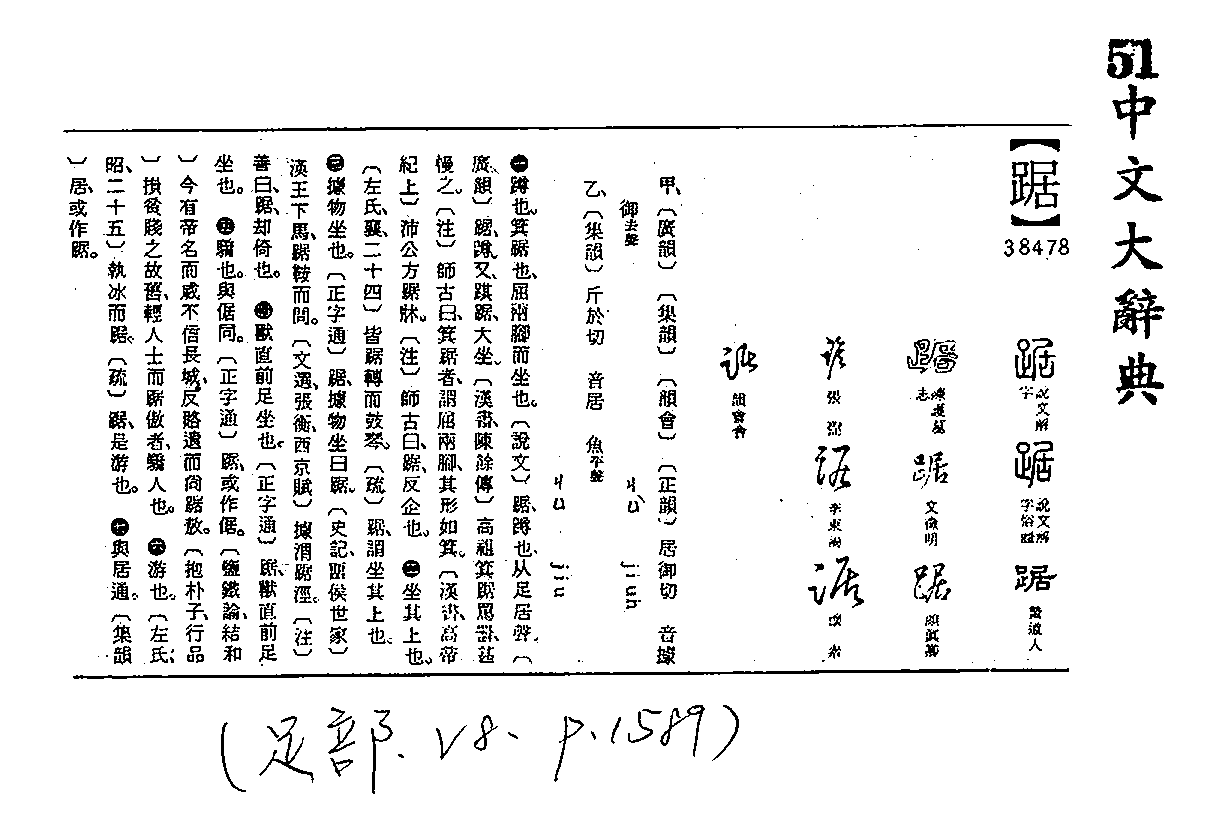 51中文大辭典
【踞】
38478
說文解字
說文解字俗體
甲、〔廣韻〕〔集韻〕〔韻會〕〔正韻〕居御切 音據
御去聲
ㄐㄩˋ jiuh
乙、〔集韻〕斤於切 音居 魚平聲
ㄐㄩ jiu
㊀蹲也。箕踞也、屈兩腳而坐也。〔說文〕踞、蹲也、从足居聲。〔
廣韻〕踞、蹲、又跽踞、大坐。〔漢書、陳餘傳〕高祖箕踞罵詈甚
慢之。〔注〕師古曰、箕踞者、謂屈兩腳、其形如箕。〔漢書、高帝
紀上〕沛公方踞牀。〔注〕師古曰、踞、反企也。㊁坐其上也。
〔左氏、襄、二十四〕皆踞轉而鼓琴。〔疏〕踞、謂坐其上也。
㊂據物坐也。〔正字通〕踞、據物坐曰踞。〔史記、留侯世家〕
漢王下馬、踞鞍而問。〔文選、張衡、西京賦〕據渭踞涇。〔注〕
善曰、踞、却倚也。㊃獸直前足坐也。〔正字通〕踞、獸直前足
坐也。㊄驕也。與倨同。〔正字通〕踞、或作倨。〔鹽鐵論、結和
〕今有帝名而威不信長城、反賂遺而尚踞敖。〔抱朴子、行品
〕損貧賤之故舊、輕人士而踞傲者、驕人也。㊅游也。〔左氏、
昭、二十五〕執冰而踞。〔疏〕踞、是游也。㊆與居通。〔集韻
〕居、或作踞。
(足部、V8、p.1589)